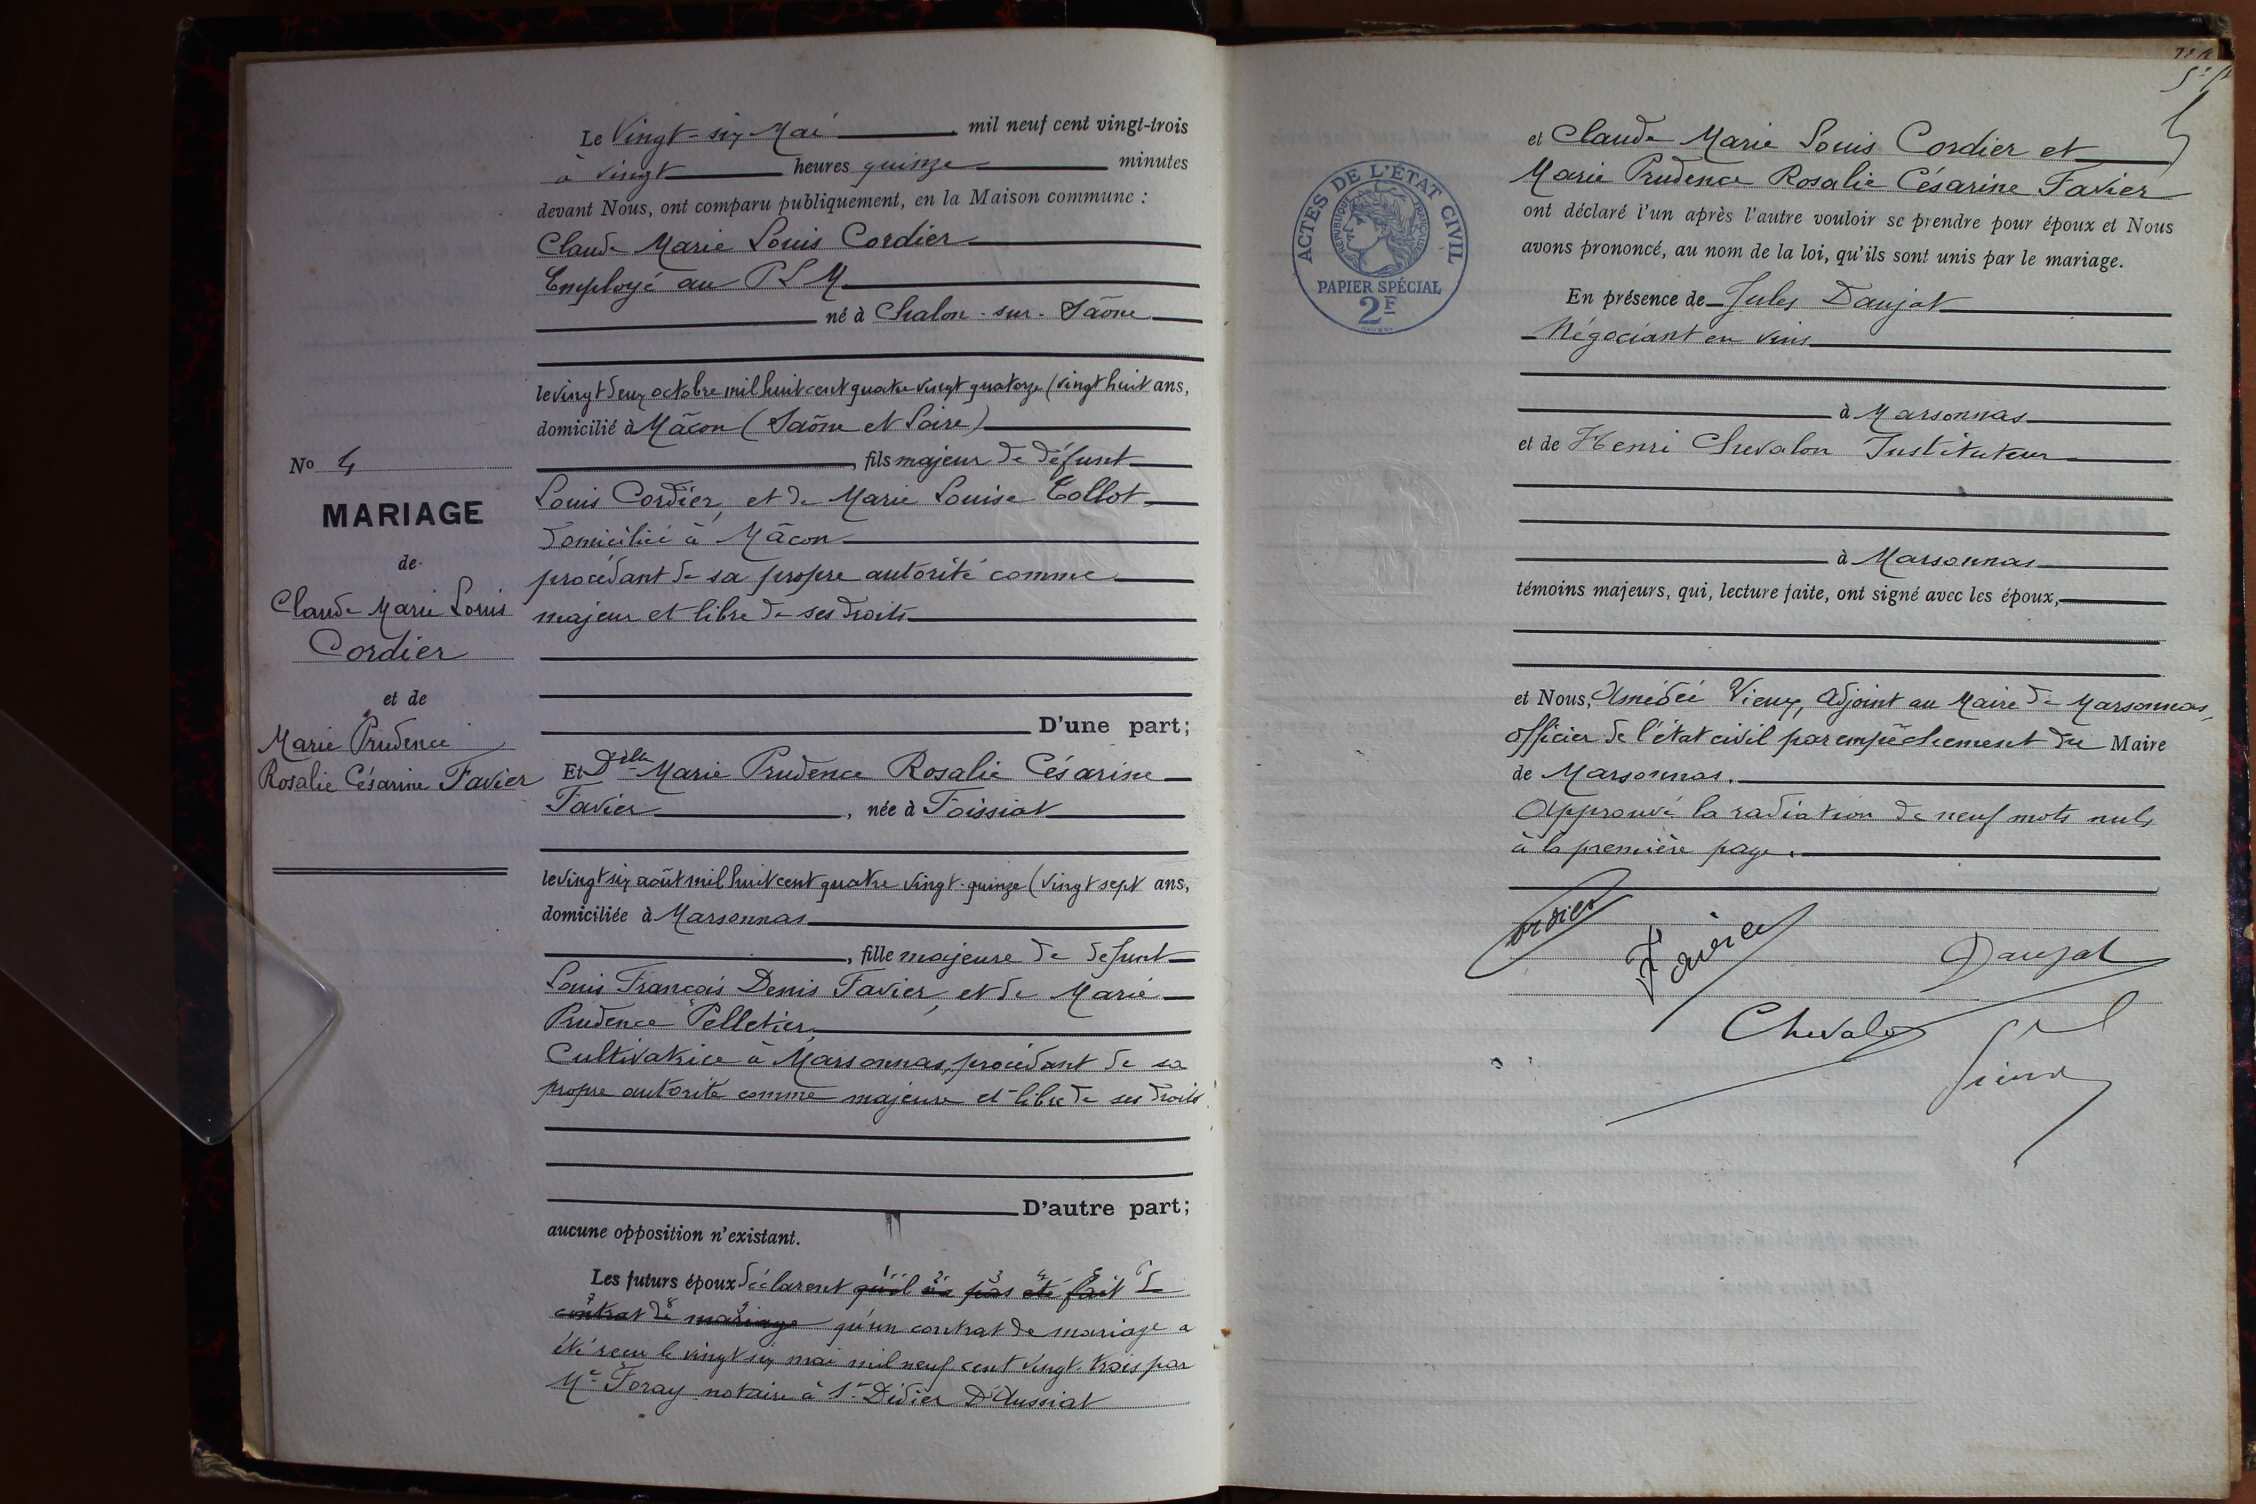 N° 4
MARIAGE
de
Claude Marie Louis
Cordier
et de
Marie Prudence
Rosalie Césarine Favier
Le Vingt-six Mai mil neuf cent vingt-trois
à vingt heures quinze minutes
devant Nous, ont comparu publiquement, en la Maison commune :
Claude Marie Louis Cordier
Employé au P L M
né à Chalon-sur-Saône
le vingt deux octobre mil huit cent quatre vingt quatorze (vingt huit ans,
domicilié à Mâcon (Saône et Loire)
, fils majeur de défunt
Louis Cordier, et de Marie Louise Collot
domiciliée à Mâcon
procédant de sa propre autorité comme
majeur et libre de ses droits
D'une part;
Et Delle Marie Prudence Rosalie Césarine
Favier, née à Foissiat
le vingt six août mil huit cent quatre vingt-quinze (vingt sept ans,
domiciliée à Marsonnas
, fille majeure de défunt
Louis François Denis Favier, et de Marie
Prudence Pelletier,
Cultivatrice à Marsonnas, procédant de sa
propre autorité comme majeure et libre de ses droits
D'autre part;
aucune opposition n'existant.
1 2 3 4 5 6
Les futurs époux déclarent qu'il n'a pas été fait de
7 8 9
contrat de mariage qu'un contrat de mariage a
été reçu le vingt six mai mil neuf cent vingt-trois par
Me Foray notaire à St Didier D'Aussiat
et Claude Marie Louis Cordier et
Marie Prudence Rosalie Césarine Favier
ont déclaré l'un après l'autre vouloir se prendre pour époux et Nous
avons prononcé, au nom de la loi, qu'ils sont unis par le mariage.
ACTES DE L'ÉTAT CIVIL
RÉPUBLIQUE FRANÇAISE
PAPIER SPÉCIAL
2F
En présence de Jules Daujat
Négociant en vins
à Marsonnas
et de Henri Chevalon Instituteur
à Marsonnas
témoins majeurs, qui, lecture faite, ont signé avec les époux,
et Nous, Amédée Vieux, Adjoint au Maire de Marsonnas,
officier de l'état civil par empêchement du Maire
de Marsonnas.
Approuvé la radiation de neuf mots nuls
à la première page.
Cordier
Favier
Daujat
Chevalon
Vieux